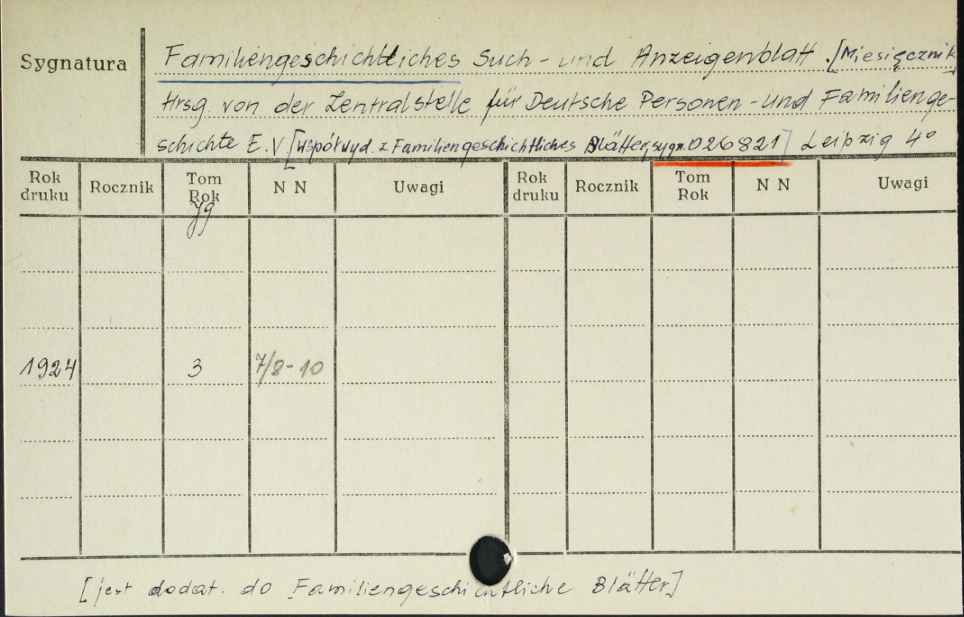 Sygnatura
Familiengeschichtliches Such- und Anzeigenblatt. [Miesięcznik]
Hrsg. von der Zentralstelle für Deutsche Personen- und Familienge-
schichte E.V [współwyd. z Familiengeschichtliches Blätter, sygn. 026821] Leipzig 4°
Rok druku Rocznik Tom Rok N N Uwagi Rok druku Rocznik Tom Rok N N Uwagi
Jg
1924 3 7/8-10
[jest dodat. do Familiengeschichtliche Blätter]